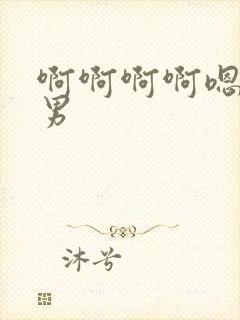 啊啊啊啊嗯
男
沐兮